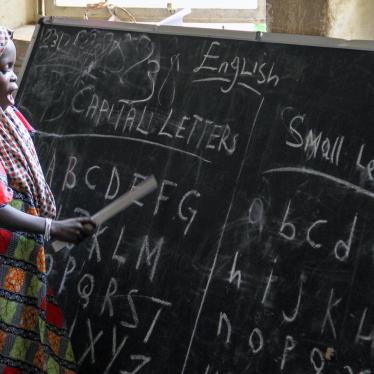 English
CAPITAL LETTERS
A B C D E F G
K L M
O P Q R S T
X Y Z
Small
a b c d
h i J K
n o p